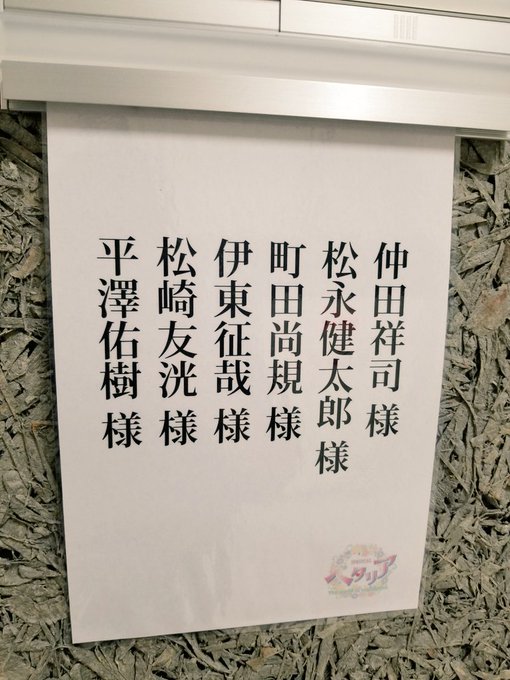 仲田祥司 様
松永健太郎 様
町田尚規 様
伊東征哉 様
松崎友洸 様
平澤佑樹 様
ヘタリア